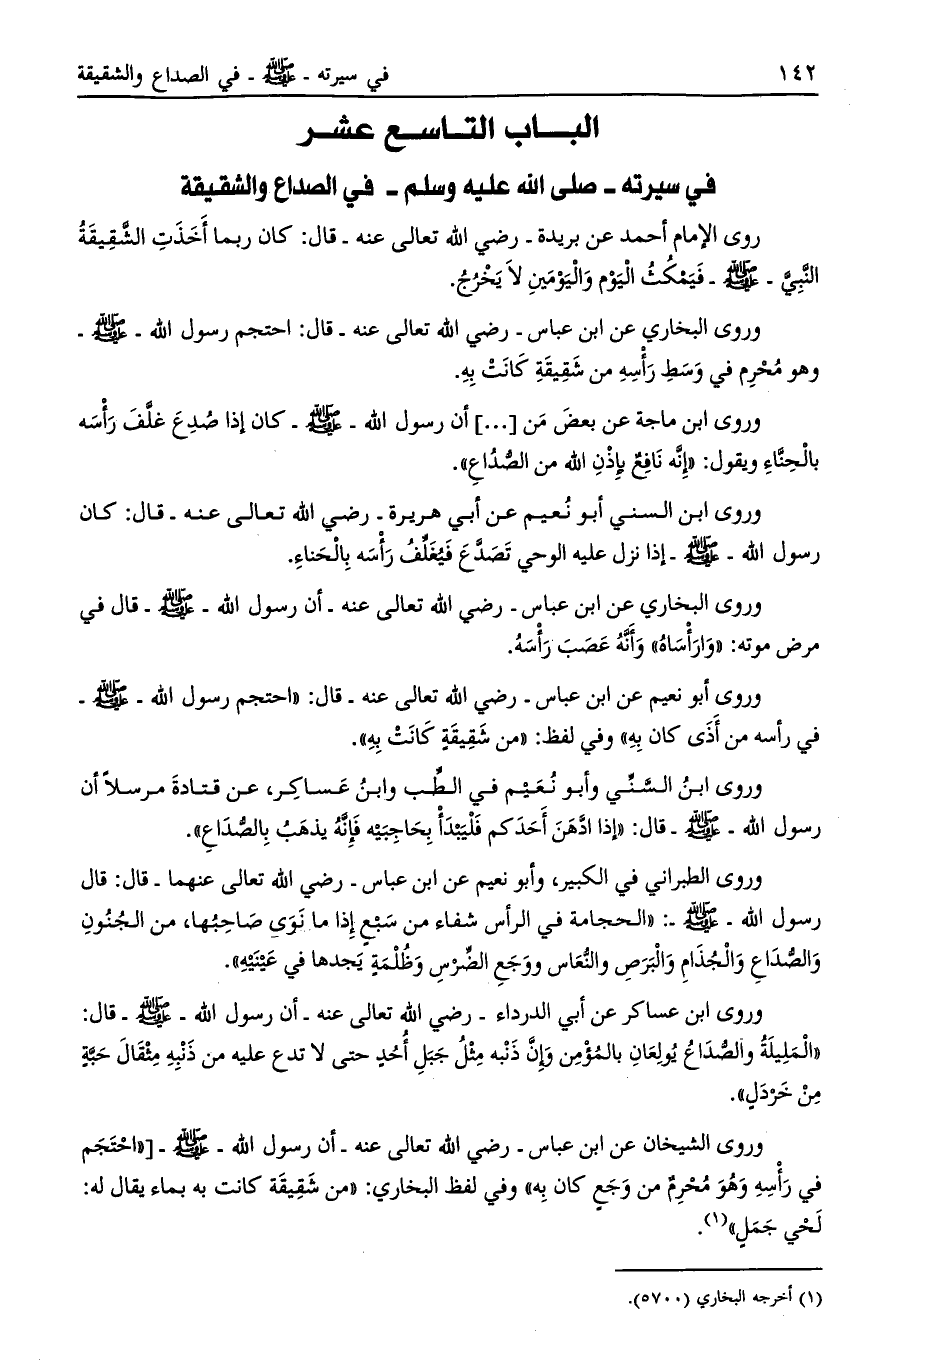 ١٤٢ في سيرته - ﷺ - في الصداع والشقيقة
البـــاب التـاسـع عشـر
في سيرته - صلى الله عليه وسلم - في الصداع والشقيقة
روى الإمام أحمد عن بريدة - رضي الله تعالى عنه - قال: كان ربما أَخَذَتِ الشَّقِيقَةُ
النَّبِيَّ - ﷺ - فَيَمْكُثُ الْيَوْم وَالْيَوْمَينِ لاَ يَخْرُجُ.
وروى البخاري عن ابن عباس - رضي الله تعالى عنه - قال: احتجم رسول الله - ﷺ -
وهو مُحْرِم في وَسَطِ رَأْسِهِ من شَقِيقَةِ كَانَتْ بِهِ.
وروى ابن ماجة عن بعضَ مَن [...] أن رسول الله - ﷺ - كان إذا صُدِعَ غلَّفَ رَأْسَه
بالْحِنَّاءِ ويقول: «إِنَّه نَافِعٌ بِإِذْنِ الله من الصُّدَاعِ».
وروى ابـن السـني أبـو نُعـيم عـن أبـي هـريرة - رضـي الله تـعـالـى عـنـه - قـال: كـان
رسول الله - ﷺ - إذا نزل عليه الوحي تَصَدَّعَ فَيُغَلِّفُ رَأْسَه بِالْحَناءِ.
وروى البخاري عن ابن عباس - رضي الله تعالى عنه - أن رسول الله - ﷺ - قال في
مرض موته: «وَارَأْسَاهُ» وَأَنَّهُ عَصَبَ رَأْسَهُ.
وروى أبو نعيم عن ابن عباس - رضي الله تعالى عنه - قال: «احتجم رسول الله - ﷺ -
في رأسه من أَذَى كان بِهِ» وفي لفظ: «من شَقِيقَةٍ كَانَتْ بِهِ».
وروى ابـنُ السَّنِّي وأبـو نُعَيْـم فـي الـطِّب وابـنُ عَـسـاكِـر، عـن قـتـادةَ مـرسـلاً أن
رسول الله - ﷺ - قال: «إذا ادَّهَنَ أَحَدَكم فَلْيَبْدَأْ بِحَاجِبَيْه فَإِنَّهُ يذهَبُ بِالصُّدَاعِ».
وروى الطبراني في الكبير، وأبو نعيم عن ابن عباس - رضي الله تعالى عنهما - قال: قال
رسول الله - ﷺ -: «الـحجامة في الرأس شفاء من سَبْعٍ إذا ما نَوَى صَاحِبُها، من الـجُنُونِ
وَالصُّدَاعِ وَالْجُذَامِ وَالْبَرَصِ والنُّعَاس ووَجَع الضِّرْس وَظُلْمَةٍ يَجدها في عَيْنَيْهِ».
وروى ابن عساكر عن أبي الدرداء - رضي الله تعالى عنه - أن رسول الله - ﷺ - قال:
«الْمَلِيلَةُ والصُّدَاعُ يُولِعَانِ بالمُؤْمِن وَإِنَّ ذَنْبه مِثْلُ جَبَلِ أُحُدٍ حتى لا تدع عليه من ذَنْبِهِ مِثْقَالَ حَبَّةٍ
مِنْ خَرْدَلٍ».
وروى الشيخان عن ابن عباس - رضي الله تعالى عنه - أن رسول الله - ﷺ - [«احْتَجَم
في رَأْسِهِ وَهُوَ مُحْرِمٌ من وَجَعٍ كان بِه» وفي لفظ البخاري: «من شَقِيقَة كانت به بماء يقال له:
لَحْي جَمَلٍ»(١).
(١) أخرجه البخاري (٥٧٠٠).